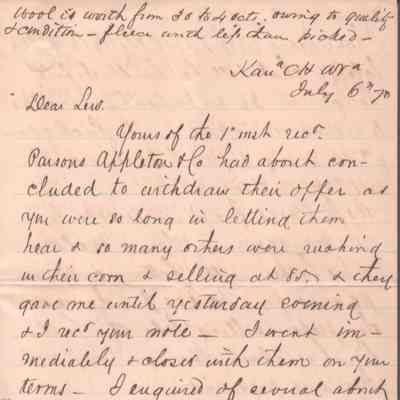 Wool is worth from 30 to 40 cts. owing to quality
& condition – fleece worth less than picked –
Kana CH W Va
July 6th 70
Dear Lew.
Yours of the 1st inst recd.
Parsons Appleton & Co had about con-
cluded to withdraw their offer as
you were so long in letting them
hear & so many others were rushing
in their corn & selling at 80. & they
gave me until yesterday evening
& I recd your note – I went im-
mediately & closed with them on your
terms – I enquired of several about